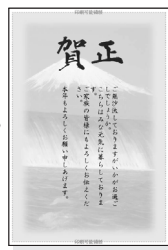 印刷可能範囲
賀正
ご無沙汰しておりますがいかがお過ご
しでしょうか。
こちらはみな元気に暮らしておりま
す。
ご家族の皆様にもよろしくお伝えくだ
さい。
本年もよろしくお願い申しあげます。
印刷可能範囲